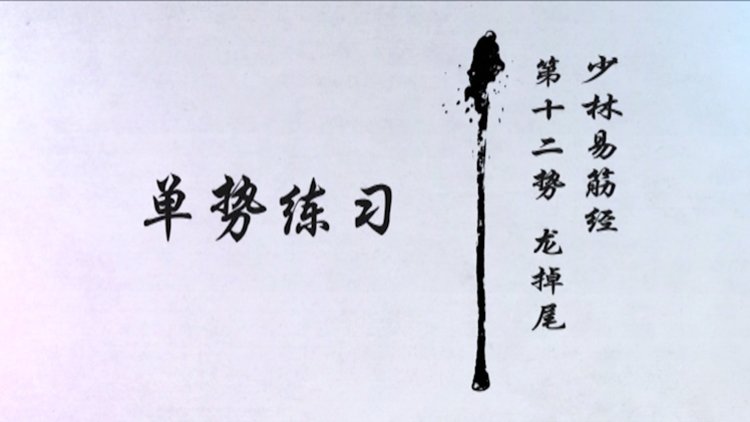 少林易筋经
第十二势 龙掉尾
单势练习